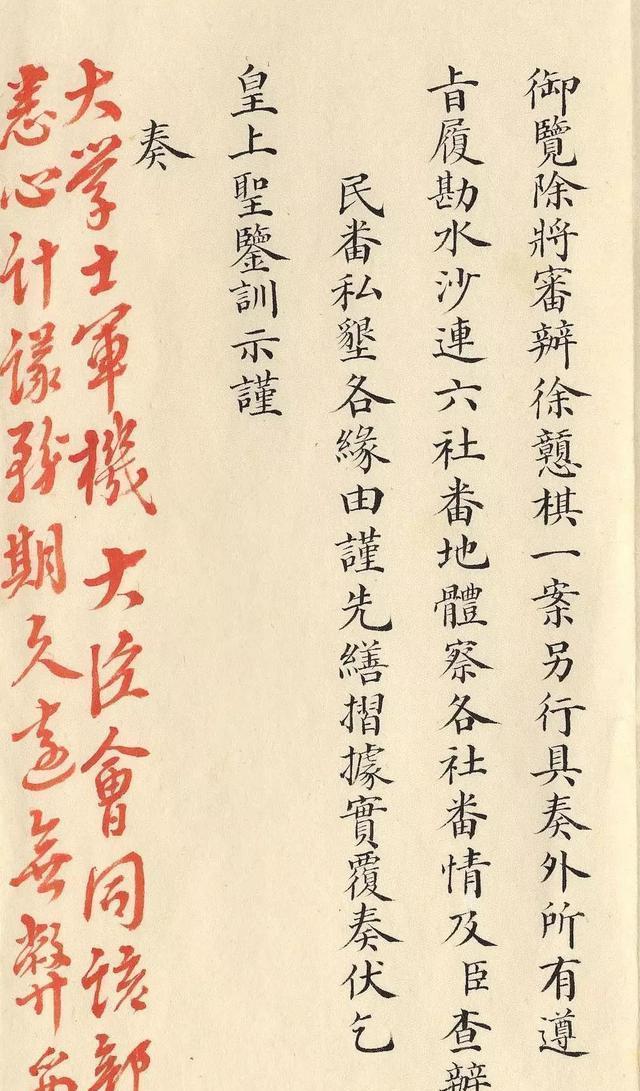 御覽除將審辦徐戇棋一案另行具奏外所有遵
旨履勘水沙連六社番地體察各社番情及臣查辦
民番私墾各緣由謹先繕摺據實覆奏伏乞
皇上聖鑒訓示謹
奏
大學士軍機大臣會同該部
悉心計議務期久遠無弊